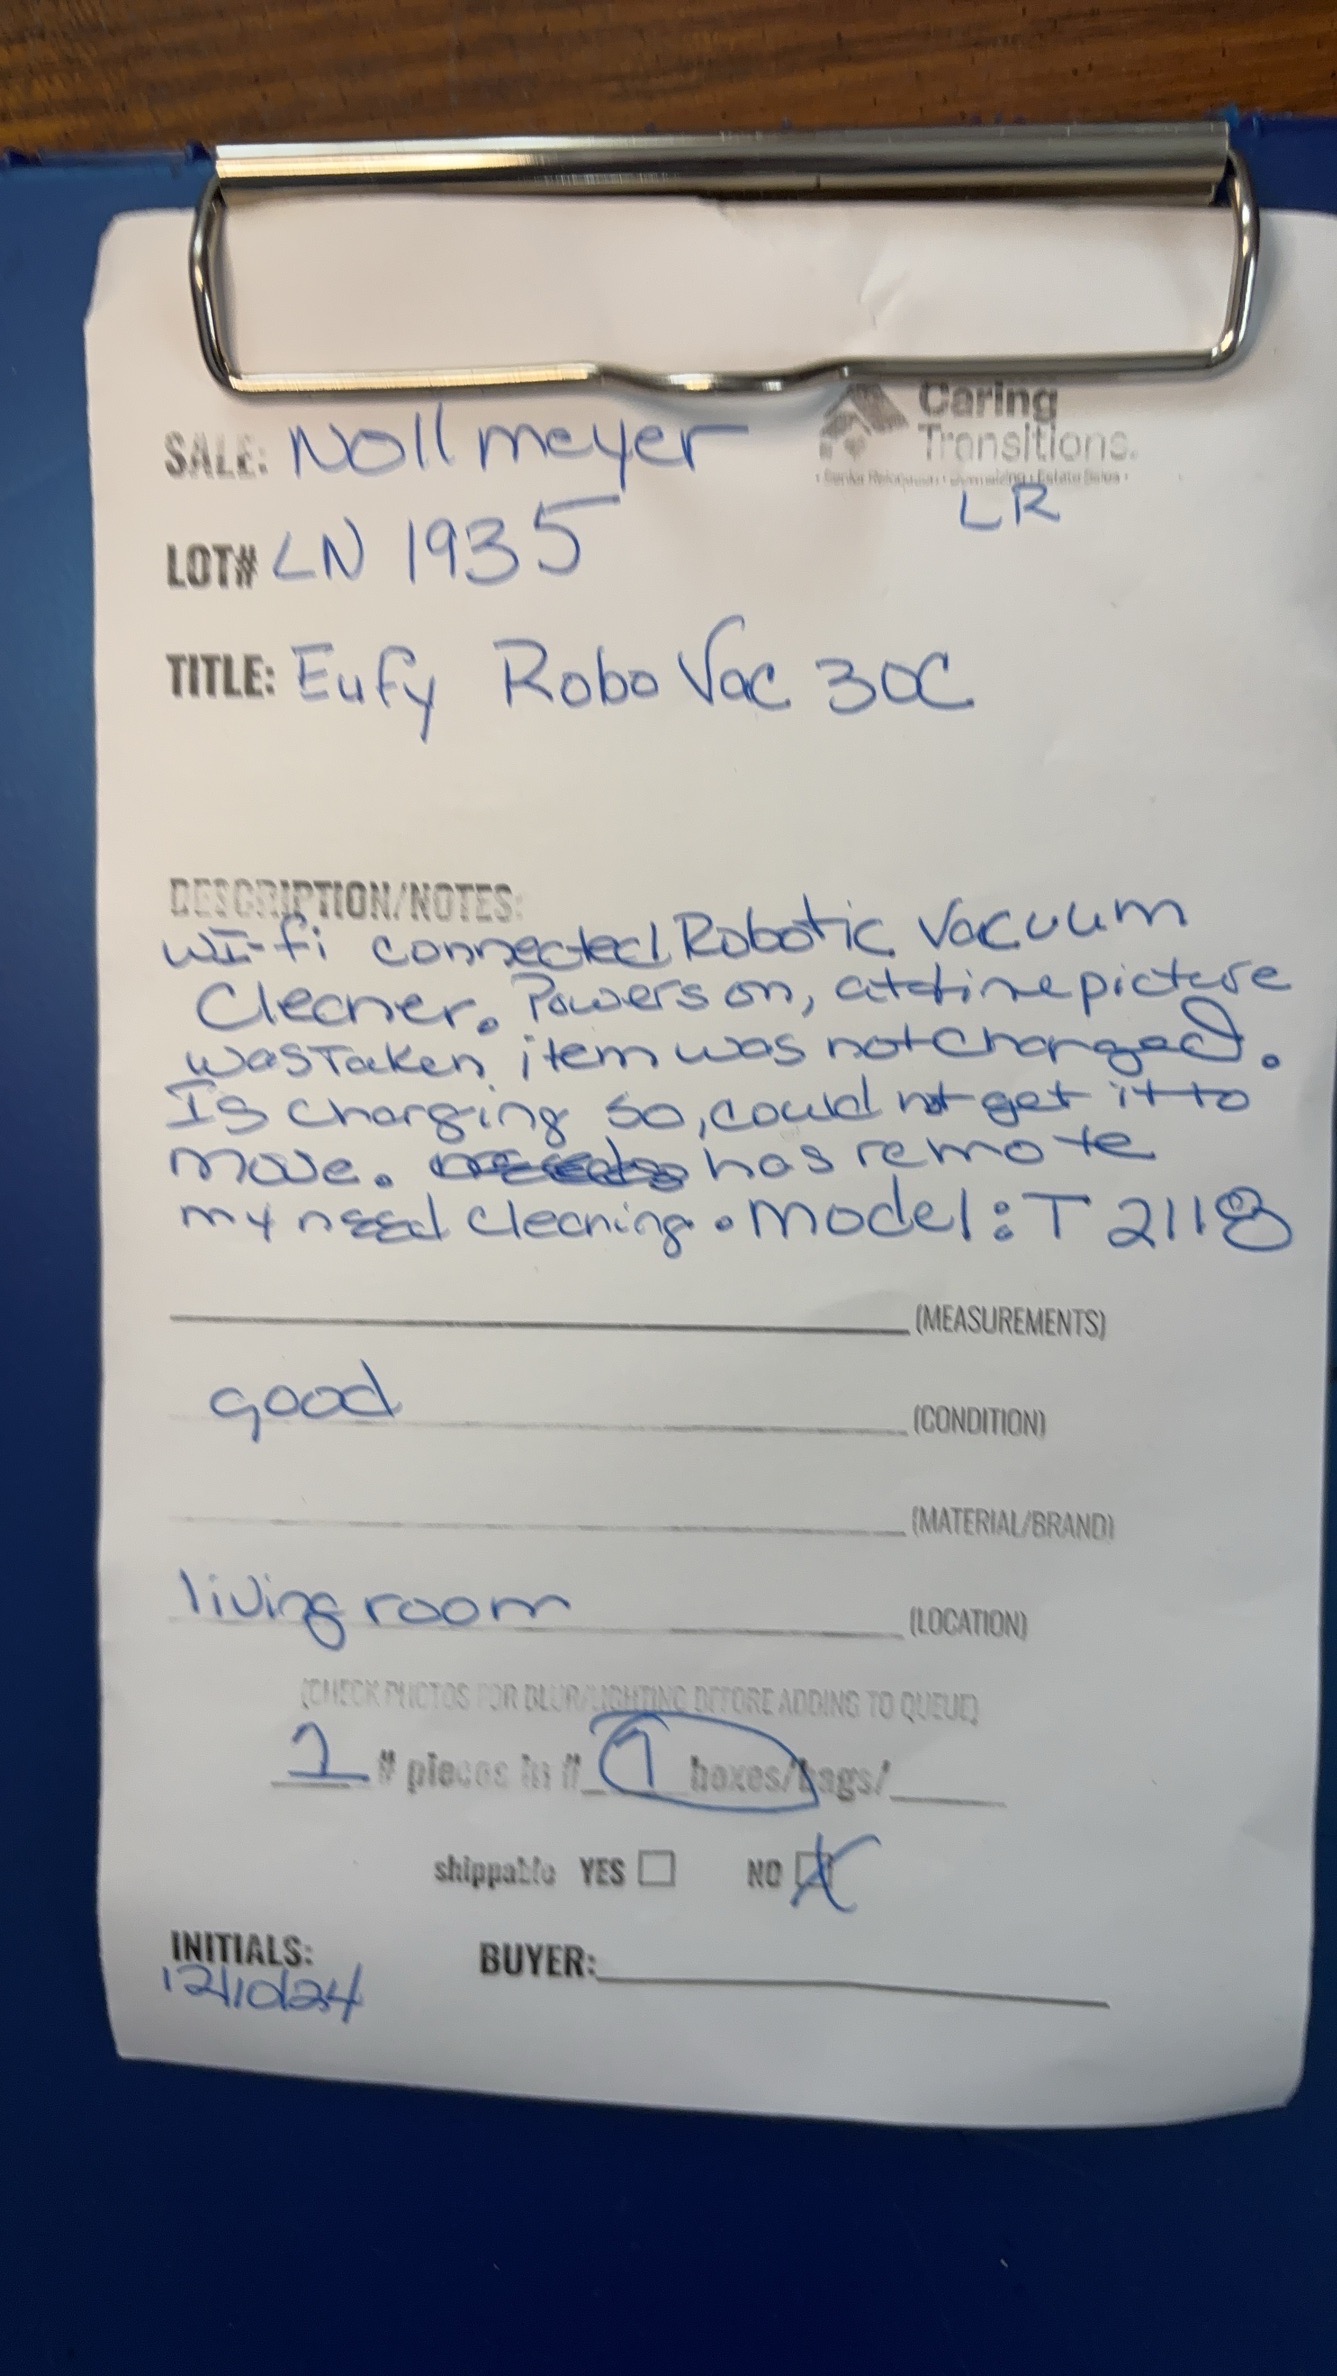 Caring
Transitions.
SALE: Nollmeyer
LR
LOT# LN 1935
TITLE: Eufy RoboVac 30C
DESCRIPTION/NOTES:
WI-fi connected Robotic Vacuum
Cleaner. Powers on, at time picture
was Taken item was not charged.
Is charging so, could not get it to
move. has remote
my need cleaning. Model: T 2118
(MEASUREMENTS)
good (CONDITION)
(MATERIAL/BRAND)
living room (LOCATION)
(CHECK PHOTOS FOR BLUR/LIGHTING BEFORE ADDING TO QUEUE)
# pieces in # 1 boxes/bags/
shippable YES NO
INITIALS: BUYER:
12/10/24